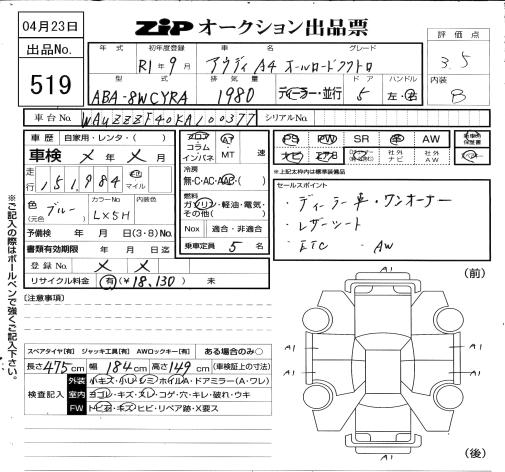 04月23日
ZIP オークション出品票
出品No.
519
年式 初年度登録 車名 グレード
R1年9月 アウディ A4 オールロードクワトロ
評価点
3.5
型式 排気量 ドア ハンドル
ABA-8WCYRA 1980 ディーラー・並行 5 左・右
内装
B
車台No. WAUZZZF40KA100377 シリアルNo.
車歴 自家用・レンタ・( )
車検 メ年 メ月
走行 151,984 km マイル
色 (元色) ブルー カラーNo. LX5H 内装色
予備検 年 月 日(3・8)No.
書類有効期限 年 月 日迄
登録No. メ メ
リサイクル料金 有(¥18,130) 未
フロア コラム インパネ
AT MT 速
冷房
無・C・AC・AAC・( )
燃料
ガソリン・軽油・電気・その他( )
Nox 適合・非適合
乗車定員 5 名
PS PW SR 革 AW
ナビ エアB 社外ナビ 社外AW
新車時保証書
※上記太枠内は標準装備品
セールスポイント
・ディーラー車・ワンオーナー
・レザーシート
・ETC ・AW
[注意事項]
※ご記入の際はボールペンで強くご記入下さい。
スペアタイヤ[有] ジャッキ工具[有] AWロックキー[有] ある場合のみ○
長さ475cm 幅184cm 高さ149cm (車検証上の寸法)
検査記入
外装 小キズ・小ヘコ・シミ・ホイルA・ドアミラー(A・ワレ)
室内 ヨゴレ・キズ・スレ・コゲ・穴・キレ・破れ・ウキ
FW トビ石・キズ・ヒビ・リペア跡・X要ス
(前)
A1
A1 A1 A1 A1
A1
(後)